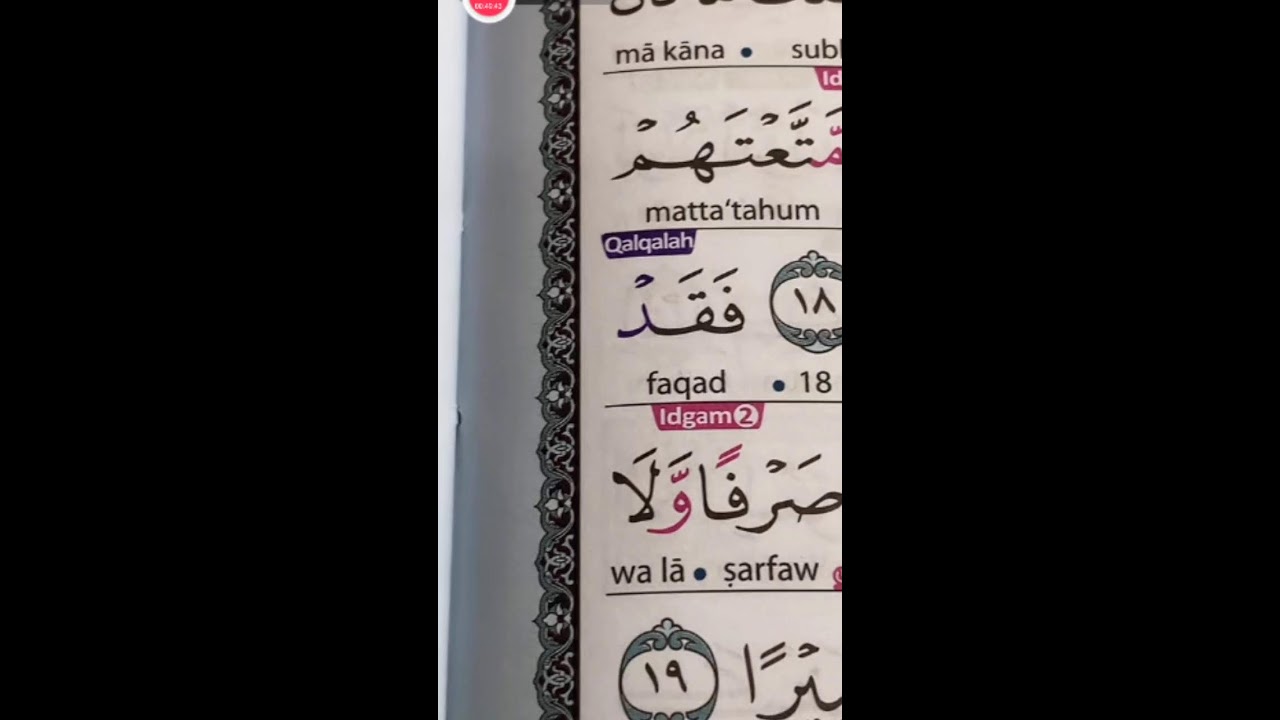 mā kāna • sub
Id
مَّتَّعْتَهُمْ
matta‘tahum
Qalqalah
١٨ فَقَدْ
faqad • 18
Idgam 2
صَرْفًا وَّلَا
wa lā • ṣarfaw
١٩